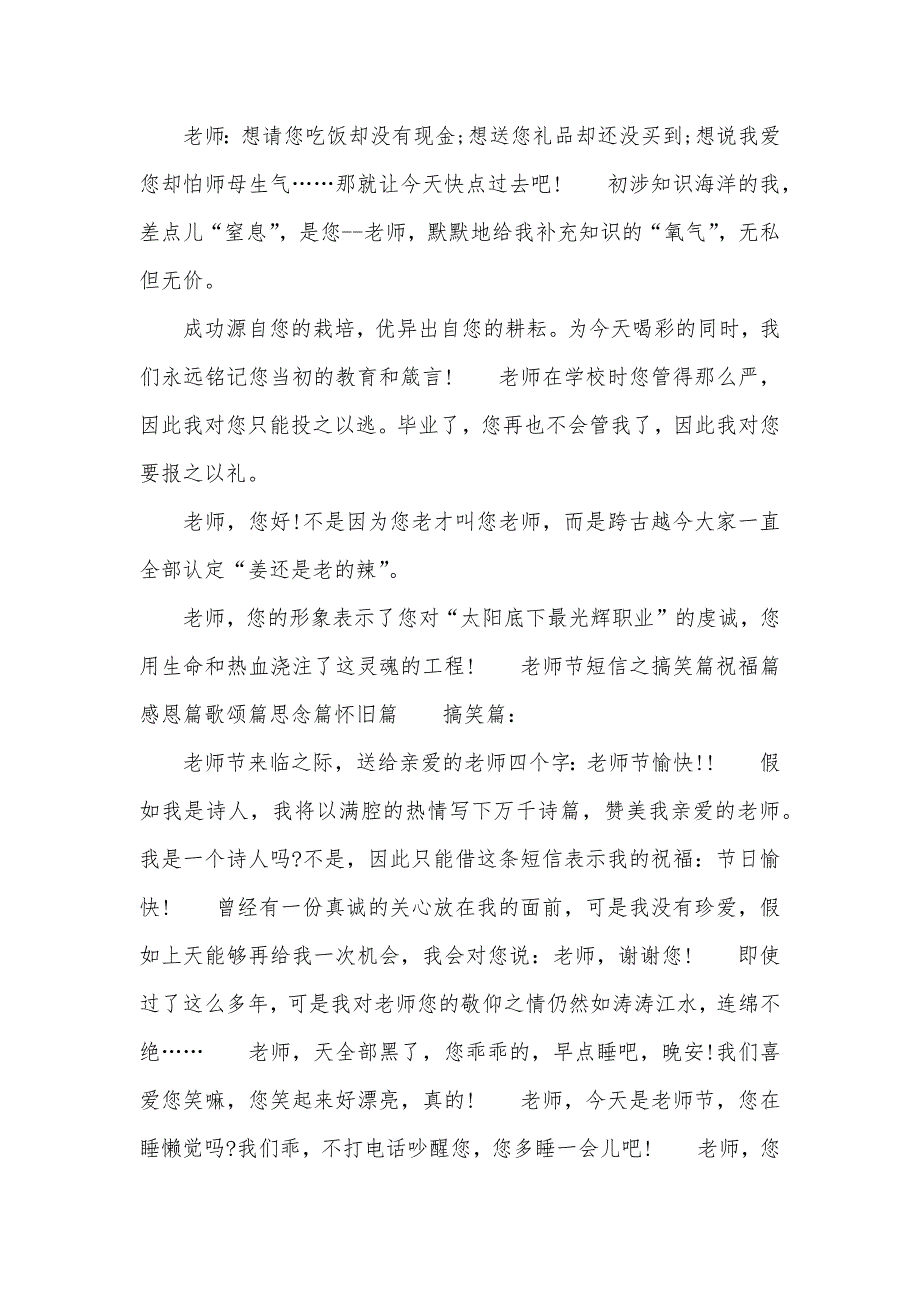 老师：想请您吃饭却没有现金;想送您礼品却还没买到;想说我爱
您却怕师母生气……那就让今天快点过去吧!　　初涉知识海洋的我，
差点儿“窒息”，是您--老师，默默地给我补充知识的“氧气”，无私
但无价。
成功源自您的栽培，优异出自您的耕耘。为今天喝彩的同时，我
们永远铭记您当初的教育和箴言!　　老师在学校时您管得那么严，
因此我对您只能投之以逃。毕业了，您再也不会管我了，因此我对您
要报之以礼。
老师，您好!不是因为您老才叫您老师，而是跨古越今大家一直
全部认定“姜还是老的辣”。
老师，您的形象表示了您对“太阳底下最光辉职业”的虔诚，您
用生命和热血浇注了这灵魂的工程!　　老师节短信之搞笑篇祝福篇
感恩篇歌颂篇思念篇怀旧篇　　搞笑篇：
老师节来临之际，送给亲爱的老师四个字：老师节愉快!!　　假
如我是诗人，我将以满腔的热情写下万千诗篇，赞美我亲爱的老师。
我是一个诗人吗?不是，因此只能借这条短信表示我的祝福：节日愉
快!　　曾经有一份真诚的关心放在我的面前，可是我没有珍爱，假
如上天能够再给我一次机会，我会对您说：老师，谢谢您!　　即使
过了这么多年，可是我对老师您的敬仰之情仍然如涛涛江水，连绵不
绝……　　老师，天全部黑了，您乖乖的，早点睡吧，晚安!我们喜
爱您笑嘛，您笑起来好漂亮，真的!　　老师，今天是老师节，您在
睡懒觉吗?我们乖，不打电话吵醒您，您多睡一会儿吧!　　老师，您